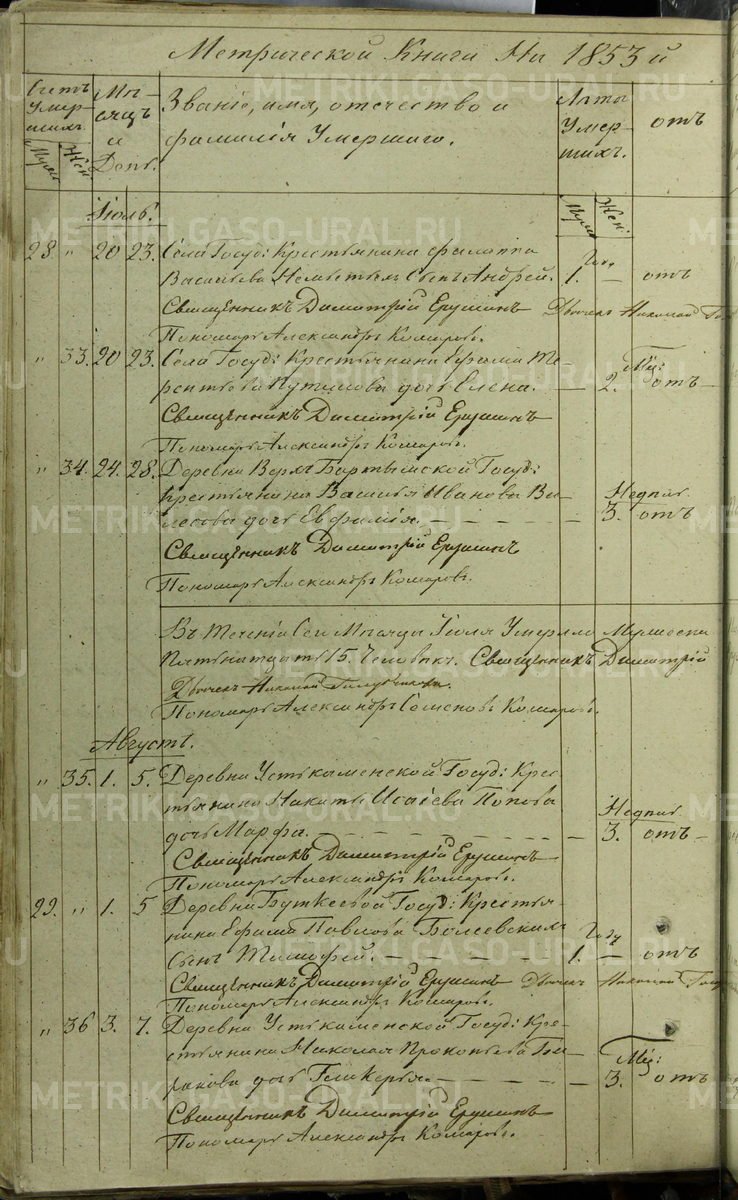 Метрической Книги На 1853й
Счетъ Умершихъ. Муж. Жен.
Мѣсяцъ и День.
Званіе, имя, отечество и фамилія Умершаго.
Лѣта Умершихъ. Муж. Жен:
отъ
Іюль.
28. „ 20 23. Села Госуд: Крестьянина Филиппа
Васильева сынъ Андрей. Году 1. — отъ
Священникъ Димитрій Дьячекъ Николай
Пономарь Александръ Комаровъ.
„ 33. 20 23. Села Госуд: Крестьянина Ефима Те-
рентьева Путилова дочь Елена. — 2. Мѣс: отъ —
Священникъ Димитрій
Пономарь Александръ Комаровъ.
„ 34. 24. 28. Деревни Верхъ Бартымской Госуд:
Крестьянина Василья Иванова
дочь Евфимія. — — — — 3. Недѣль отъ
Священникъ Димитрій
Пономарь Александръ Комаровъ.
Въ теченіи сего Мѣсяца Іюля Умерло Мужеска
Пятнатцать 15. Человѣкъ. Священникъ Димитрій
Дьячекъ Николай
Пономарь Александръ Семеновъ Комаровъ.
Августъ.
„ 35. 1. 5. Деревни Усть каменской Госуд: Крес-
тьянина Никиты Исаіева Попова
дочь Марфа. — — — — 3. Недѣль отъ —
Священникъ Димитрій
Пономарь Александръ Комаровъ.
29. „ 1. 5 Деревни Буткеевой Госуд: Крестья-
нина Ефима Павлова
сынъ Тимофей. — — — — 1. Году — отъ
Священникъ Димитрій Дьячекъ Николай
Пономарь Александръ Комаровъ.
„ 36 3. 7. Деревни Усть каменской Госуд: Кре-
стьянина Николая Прокопьева
дочь Гликерья. — — — — 3. Мѣс: отъ
Священникъ Димитрій
Пономарь Александръ Комаровъ.
METRIKI.GASO-URAL.RU